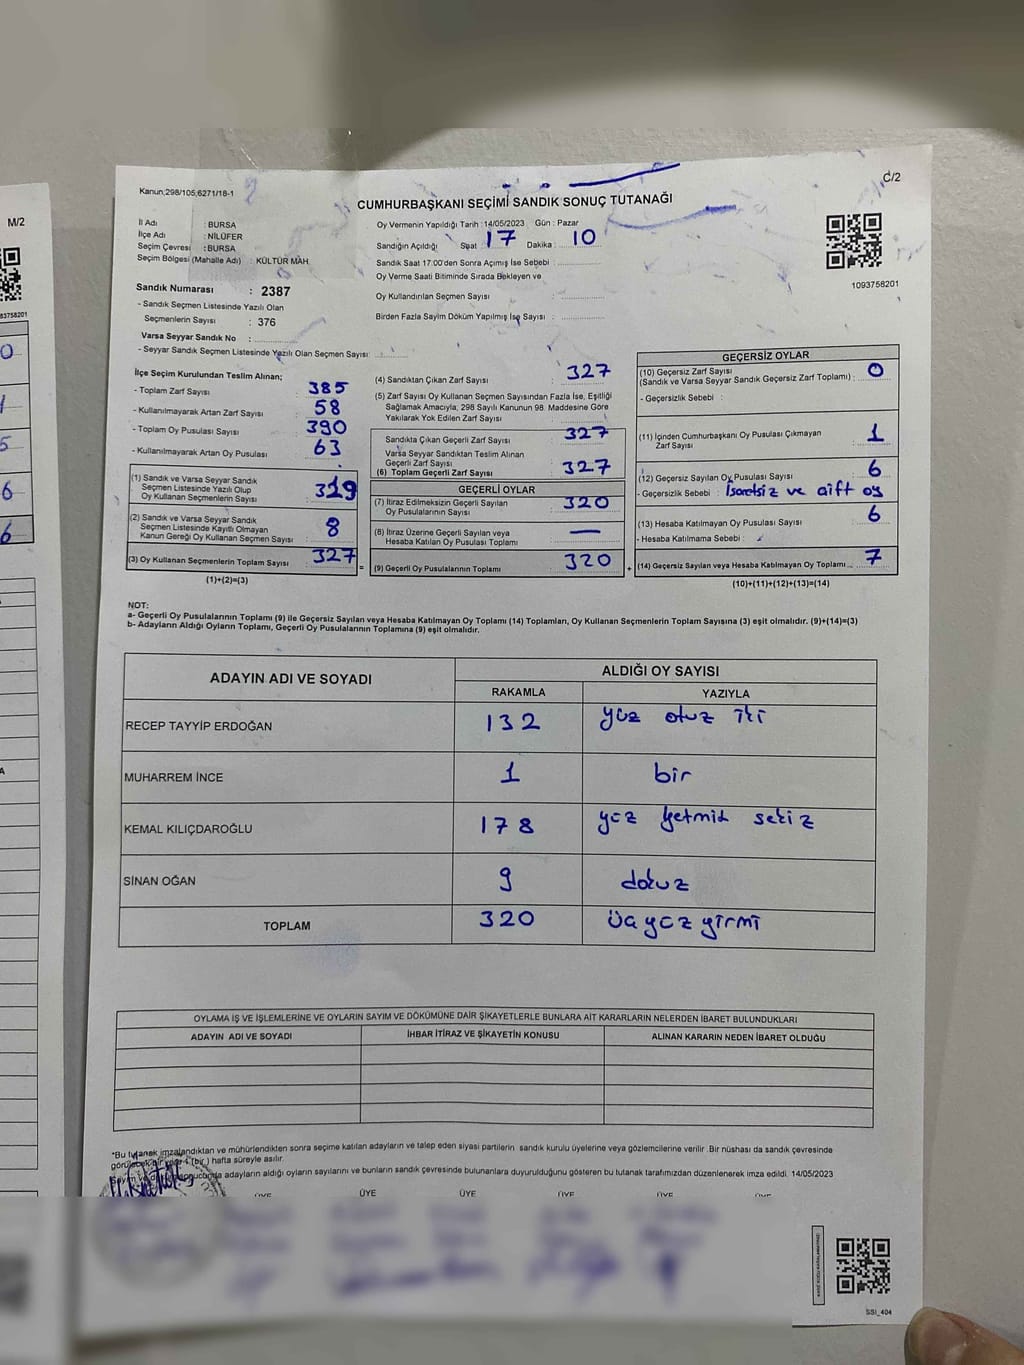 Kanun;298/105;6271/18-1
C/2
CUMHURBAŞKANI SEÇİMİ SANDIK SONUÇ TUTANAĞI
M/2
İl Adı : BURSA
İlçe Adı : NİLÜFER
Seçim Çevresi : BURSA
Seçim Bölgesi (Mahalle Adı) : KÜLTÜR MAH.
Oy Vermenin Yapıldığı Tarih :14/05/2023 Gün : Pazar
Sandığın Açıldığı Saat : 17 Dakika : 10
Sandık Saat 17:00'den Sonra Açımış İse Sebebi :
Oy Verme Saati Bitiminde Sırada Bekleyen ve
Oy Kullandırılan Seçmen Sayısı :
Birden Fazla Sayim Döküm Yapılmış İse Sayısı :
1093758201
Sandık Numarası : 2387
- Sandık Seçmen Listesinde Yazılı Olan
Seçmenlerin Sayısı : 376
Varsa Seyyar Sandık No :
- Seyyar Sandık Seçmen Listesinde Yazılı Olan Seçmen Sayısı:
İlçe Seçim Kurulundan Teslim Alınan;
- Toplam Zarf Sayısı : 385
- Kullanılmayarak Artan Zarf Sayısı : 58
- Toplam Oy Pusulası Sayısı : 390
- Kullanılmayarak Artan Oy Pusulası : 63
(1) Sandık ve Varsa Seyyar Sandık
Seçmen Listesinde Yazılı Olup
Oy Kullanan Seçmenlerin Sayısı : 319
(2) Sandık ve Varsa Seyyar Sandık
Seçmen Listesinde Kayıtlı Olmayan
Kanun Gereği Oy Kullanan Seçmen Sayısı : 8
(3) Oy Kullanan Seçmenlerin Toplam Sayısı : 327
(1)+(2)=(3)
(4) Sandıktan Çıkan Zarf Sayısı : 327
(5) Zarf Sayısı Oy Kullanan Seçmen Sayısından Fazla İse, Eşitliği
Sağlamak Amacıyla; 298 Sayılı Kanunun 98. Maddesine Göre
Yakılarak Yok Edilen Zarf Sayısı :
Sandıkta Çıkan Geçerli Zarf Sayısı : 327
Varsa Seyyar Sandıktan Teslim Alınan
Geçerli Zarf Sayısı
(6) Toplam Geçerli Zarf Sayısı : 327
GEÇERLİ OYLAR
(7) İtiraz Edilmeksizin Geçerli Sayılan
Oy Pusulalarının Sayısı : 320
(8) İtiraz Üzerine Geçerli Sayılan veya
Hesaba Katılan Oy Pusulası Toplamı : —
(9) Geçerli Oy Pusulalarının Toplamı : 320
GEÇERSİZ OYLAR
(10) Geçersiz Zarf Sayısı
(Sandık ve Varsa Seyyar Sandık Geçersiz Zarf Toplamı) : 0
- Geçersizlik Sebebi :
(11) İçinden Cumhurbaşkanı Oy Pusulası Çıkmayan
Zarf Sayısı : 1
(12) Geçersiz Sayılan Oy Pusulası Sayısı : 6
- Geçersizlik Sebebi : İşaretsiz ve çift oy
(13) Hesaba Katılmayan Oy Pusulası Sayısı : 6
- Hesaba Katılmama Sebebi :
(14) Geçersiz Sayılan veya Hesaba Katılmayan Oy Toplamı : 7
(10)+(11)+(12)+(13)=(14)
NOT:
a- Geçerli Oy Pusulalarının Toplamı (9) ile Geçersiz Sayılan veya Hesaba Katılmayan Oy Toplamı (14) Toplamları, Oy Kullanan Seçmenlerin Toplam Sayısına (3) eşit olmalıdır. (9)+(14)=(3)
b- Adayların Aldığı Oyların Toplamı, Geçerli Oy Pusulalarının Toplamına (9) eşit olmalıdır.
ADAYIN ADI VE SOYADI ALDIĞI OY SAYISI
RAKAMLA YAZIYLA
RECEP TAYYİP ERDOĞAN 132 yüz otuz iki
MUHARREM İNCE 1 bir
KEMAL KILIÇDAROĞLU 178 yüz yetmiş sekiz
SİNAN OĞAN 9 dokuz
TOPLAM 320 üçyüz yirmi
OYLAMA İŞ VE İŞLEMLERİNE VE OYLARIN SAYIM VE DÖKÜMÜNE DAİR ŞİKAYETLERLE BUNLARA AİT KARARLARIN NELERDEN İBARET BULUNDUKLARI
ADAYIN ADI VE SOYADI İHBAR İTİRAZ VE ŞİKAYETİN KONUSU ALINAN KARARIN NEDEN İBARET OLDUĞU
*Bu tutanak imzalandıktan ve mühürlendikten sonra seçime katılan adayların ve talep eden siyasi partilerin sandık kurulu üyelerine veya gözlemcilerine verilir .Bir nüshası da sandık çevresinde
görülecek bir yere 1 (bir ) hafta süreyle asılır.
Sayım ve döküm sonucunda adayların aldığı oyların sayılarını ve bunların sandık çevresinde bulunanlara duyurulduğunu gösteren bu tutanak tarafımızdan düzenlenerek imza edildi. 14/05/2023
ÜYE ÜYE ÜYE ÜYE ÜYE ÜYE
SSI_404